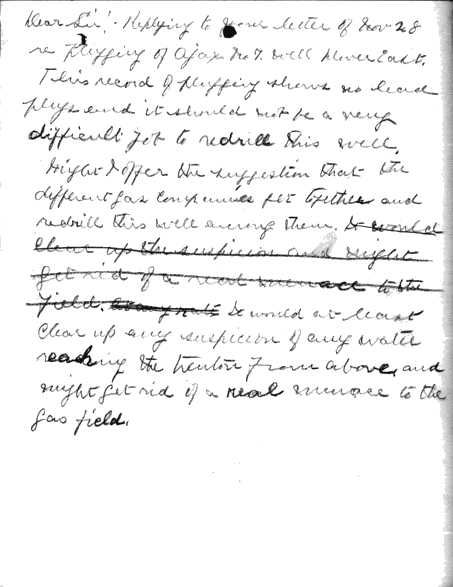 Dear Sir! - Replying to your letter of Nov 28
re plugging of Ajax No 7. well Dover East.
This record of plugging shows no lead
plugs and it should not be a very
difficult job to redrill this well.
Might I offer the suggestion that the
different gas companies get together and
redrill this well among them. It would
clear up the suspicion and might
get rid of a real menace to the
field. It would at least
clear up any suspicion of any water
reaching the trenton from above, and
might get rid of a real menace to the
gas field.